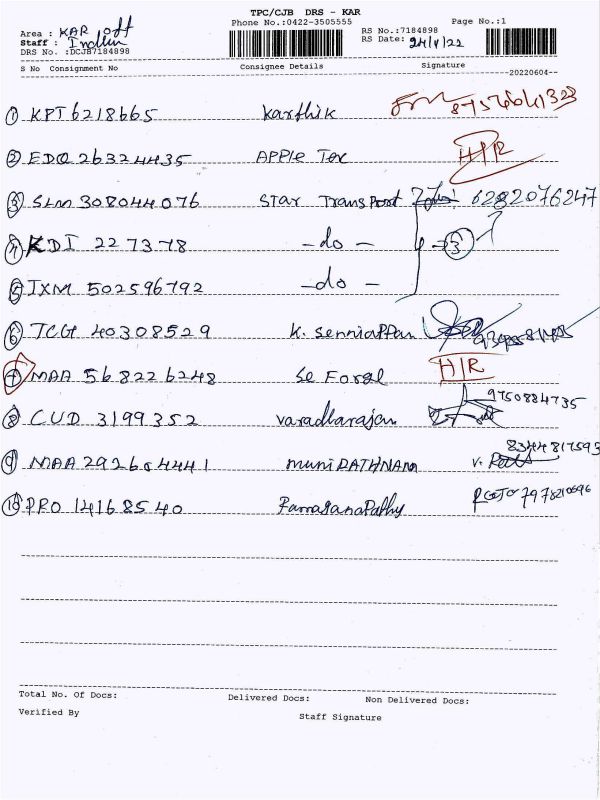 TPC/CJB DRS - KAR
Phone No.:0422-3505555 Page No.:1
Area : KAR off
Staff :
DRS No. :DCJB7184898
RS No.:7184898
RS Date:
S No Consignment No Consignee Details Signature
--20220604--
1 KPT 6218665 Karthik
2 EDQ 26324435 APPle Tex H/R
3 SLM 308044076 STar TransPort 6282076247
4 KDI 227378 -do- 3
5 JXM 502596792 -do-
6 TCG 40308529 K. Senniappan
7 MAA 568226248 H/R
8 CUD 3199352 varadharajan 9750884735
9 MAA 292604441 muniRATHNAM 8344817593
10 PRO 14168540
Total No. Of Docs: Delivered Docs: Non Delivered Docs:
Verified By Staff Signature